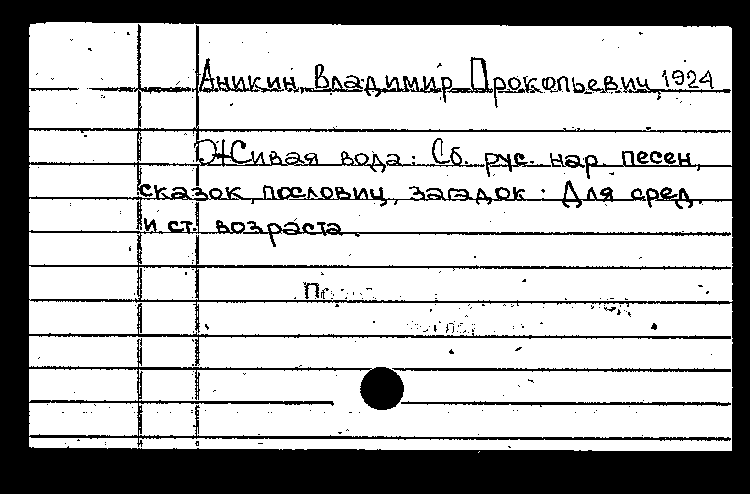 Аникин, Владимир Прокопьевич, 1924
Живая вода: Сб. рус. нар. песен,
сказок, пословиц, загадок: Для сред.
и ст. возраста.